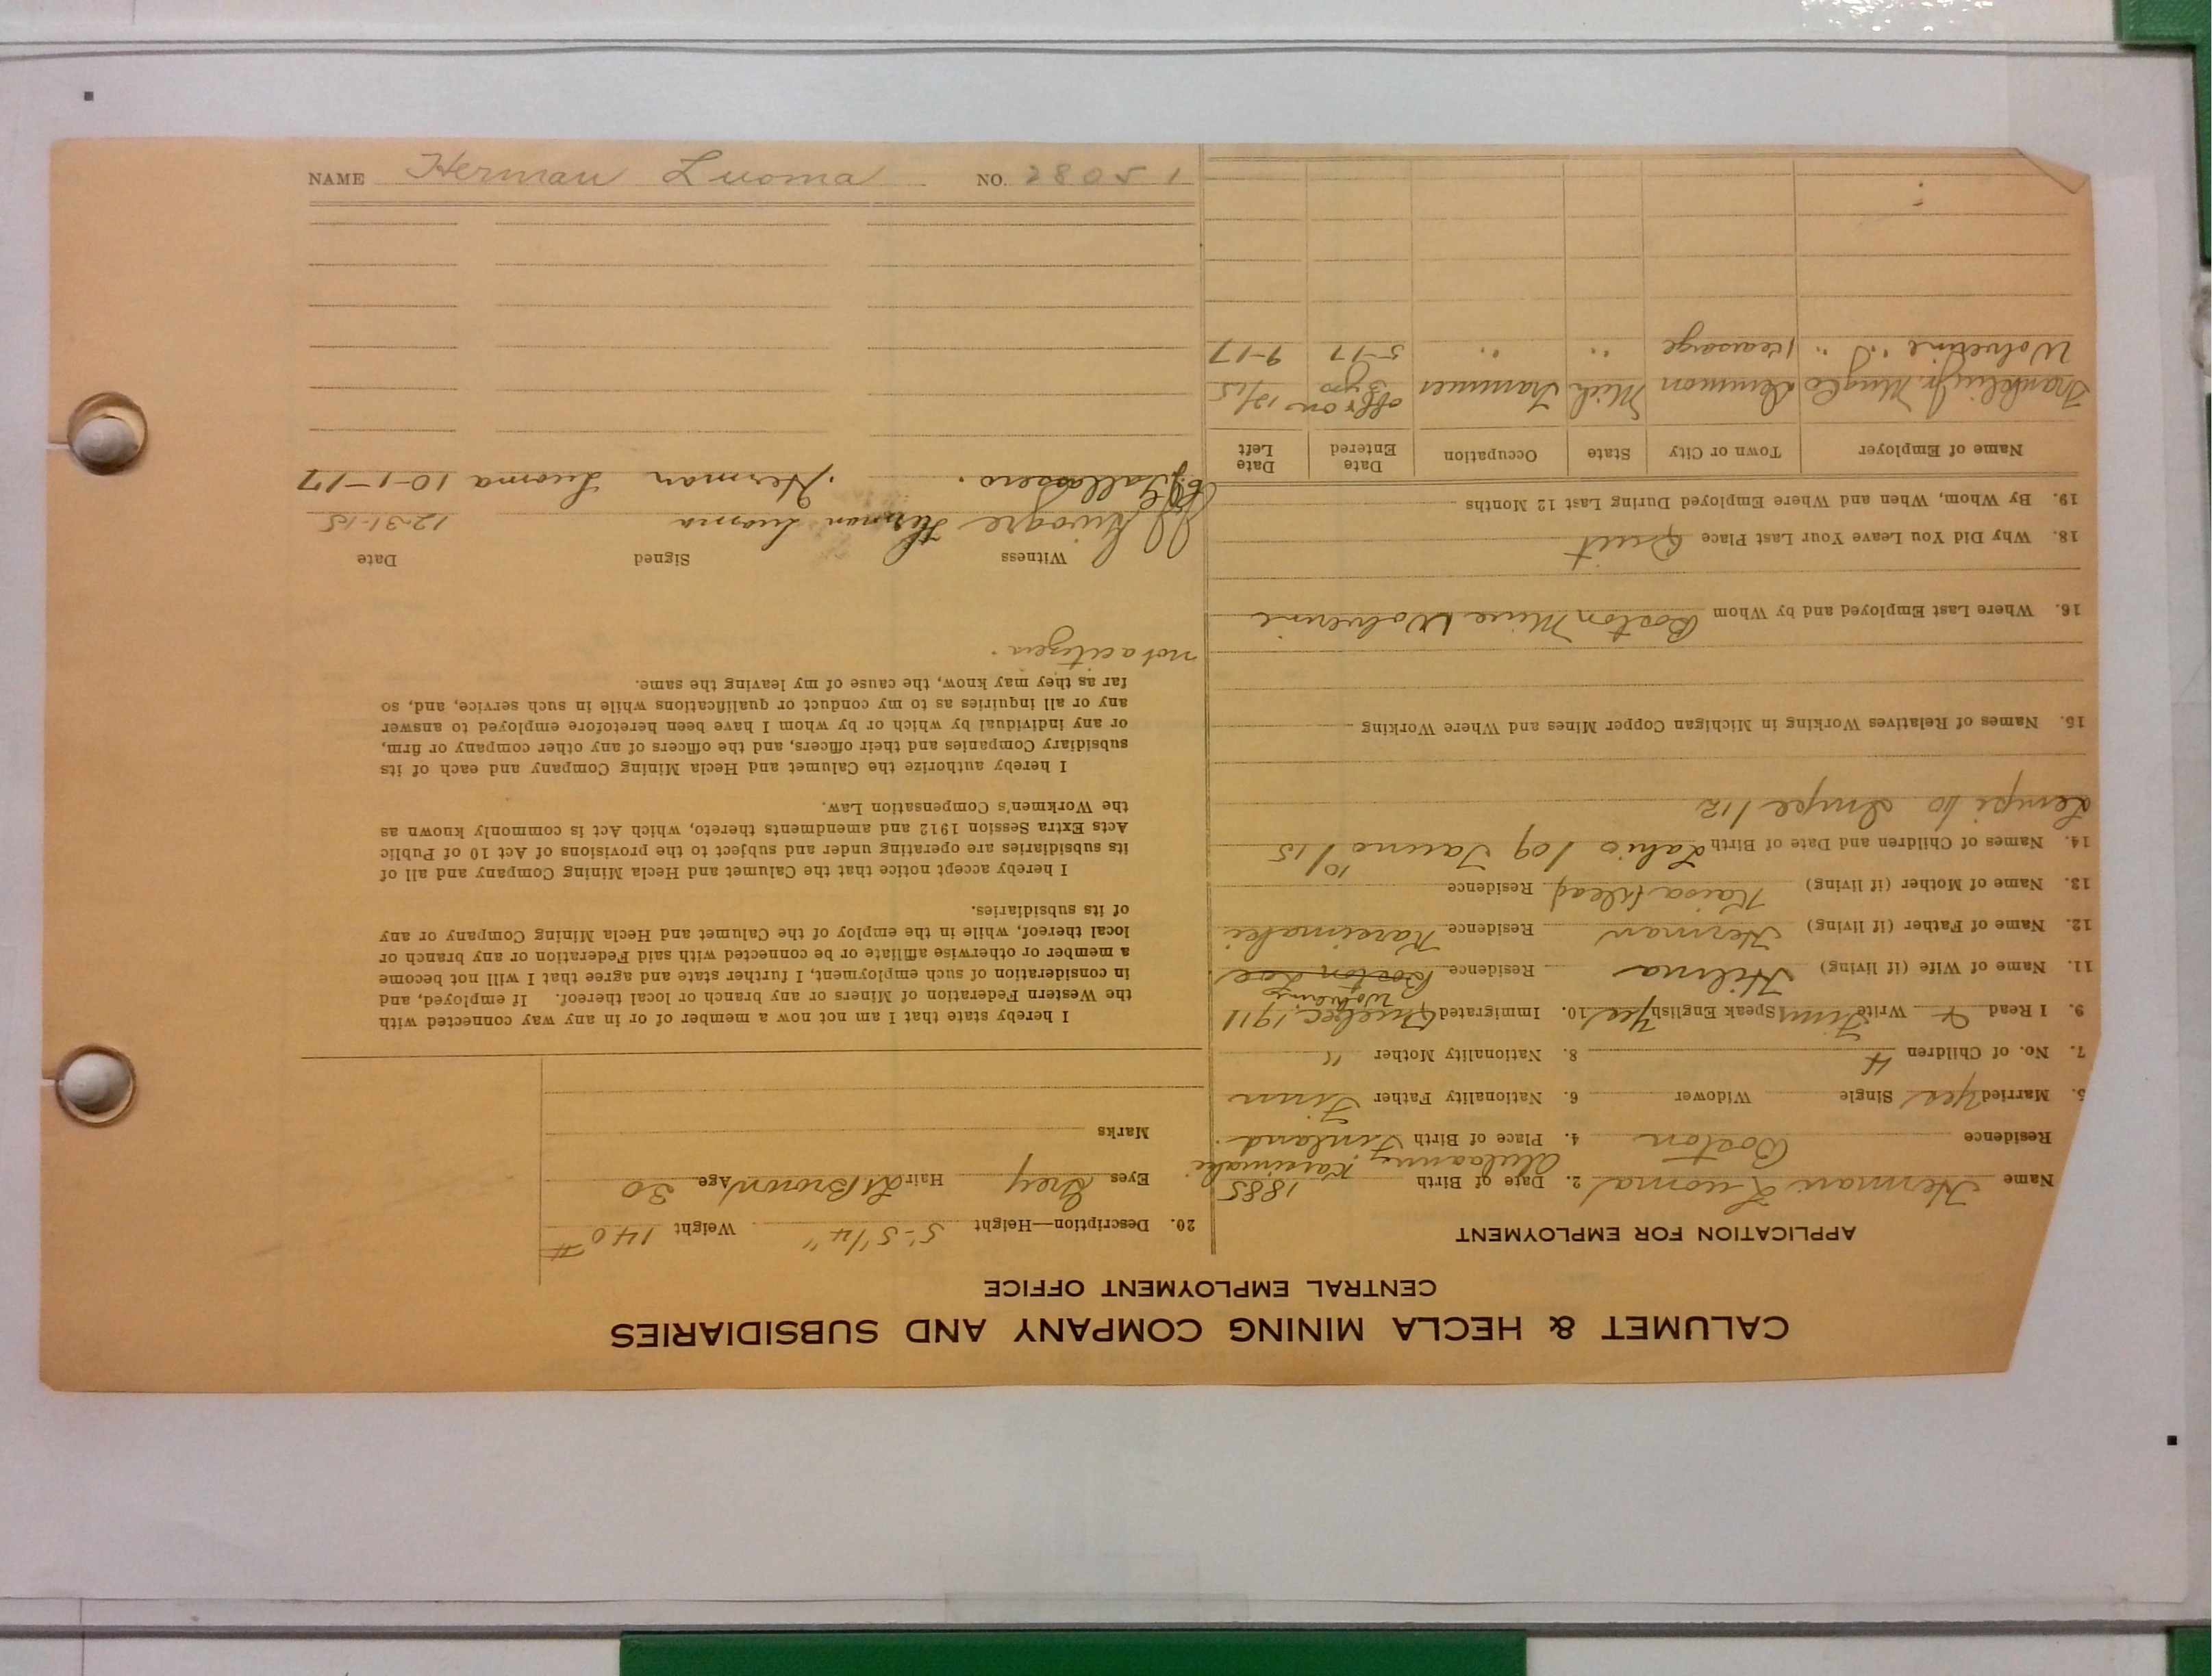 CALUMET & HECLA MINING COMPANY AND SUBSIDIARIES
CENTRAL EMPLOYMENT OFFICE
APPLICATION FOR EMPLOYMENT
Name Herman Luoma 2. Date of Birth 1885
Residence Boston 4. Place of Birth Finland.
5. Married Yes Single Widower 6. Nationality Father Finn
7. No. of Children 4 8. Nationality Mother "
9. I Read & Write Finn Speak English Yes 10. Immigrated Quebec 1911
11. Name of Wife (if living) Hilma Residence Boston Loc
12. Name of Father (if living) Herman Residence Kareimaki
13. Name of Mother (if living) Kaisa (dead) Residence
14. Names of Children and Date of Birth Lahio /09 Tauno 10/15
Lempi 10 Impe /12
15. Names of Relatives Working in Michigan Copper Mines and Where Working
16. Where Last Employed and by Whom Boston Mine Wolverine
18. Why Did You Leave Your Last Place Quit
19. By Whom, When and Where Employed During Last 12 Months
Name of Employer Town or City State Occupation Date Entered Date Left
Franklin Jr. Mng Co Demmon Mich Trammer off & on 3 yrs 12/15
Wolverine " " Kearsarge " " 5-17 9-17
20. Description—Height 5'-5 1/4" Weight 140 #
Eyes Grey Hair Lt Brown Age 30
Marks
I hereby state that I am not now a member of or in any way connected with
the Western Federation of Miners or any branch or local thereof. If employed, and
in consideration of such employment, I further state and agree that I will not become
a member or otherwise affiliate or be connected with said Federation or any branch or
local thereof, while in the employ of the Calumet and Hecla Mining Company or any
of its subsidiaries.
I hereby accept notice that the Calumet and Hecla Mining Company and all of
its subsidiaries are operating under and subject to the provisions of Act 10 of Public
Acts Extra Session 1912 and amendments thereto, which Act is commonly known as
the Workmen's Compensation Law.
I hereby authorize the Calumet and Hecla Mining Company and each of its
subsidiary Companies and their officers, and the officers of any other company or firm,
or any individual by which or by whom I have been heretofore employed to answer
any or all inquiries as to my conduct or qualifications while in such service, and, so
far as they may know, the cause of my leaving the same.
not a citizen.
Witness Signed Date
Herman Luoma 12-31-15
Herman Luoma 10-1-17
NAME Herman Luoma NO. 28051